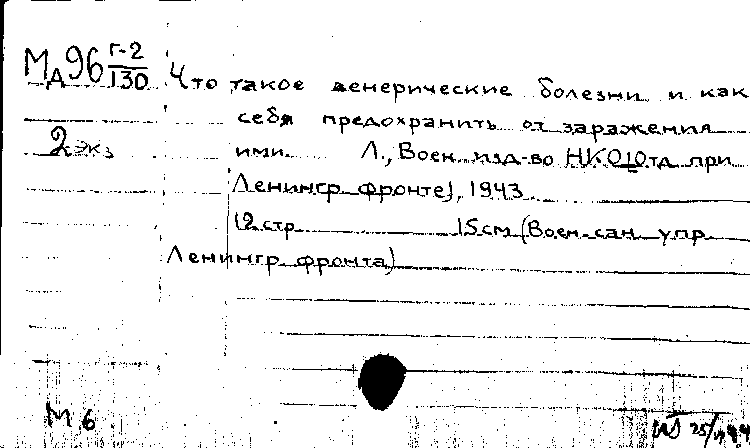 МД96 Г-2/130
2 экз
Что такое венерические болезни и как
себя предохранить от заражения
ими Л., Воен. изд-во НКО (Отд. при
Ленингр. фронте), 1943.
12 стр 15 см (Воен.-сан. упр.
Ленингр. фронта)
М 6